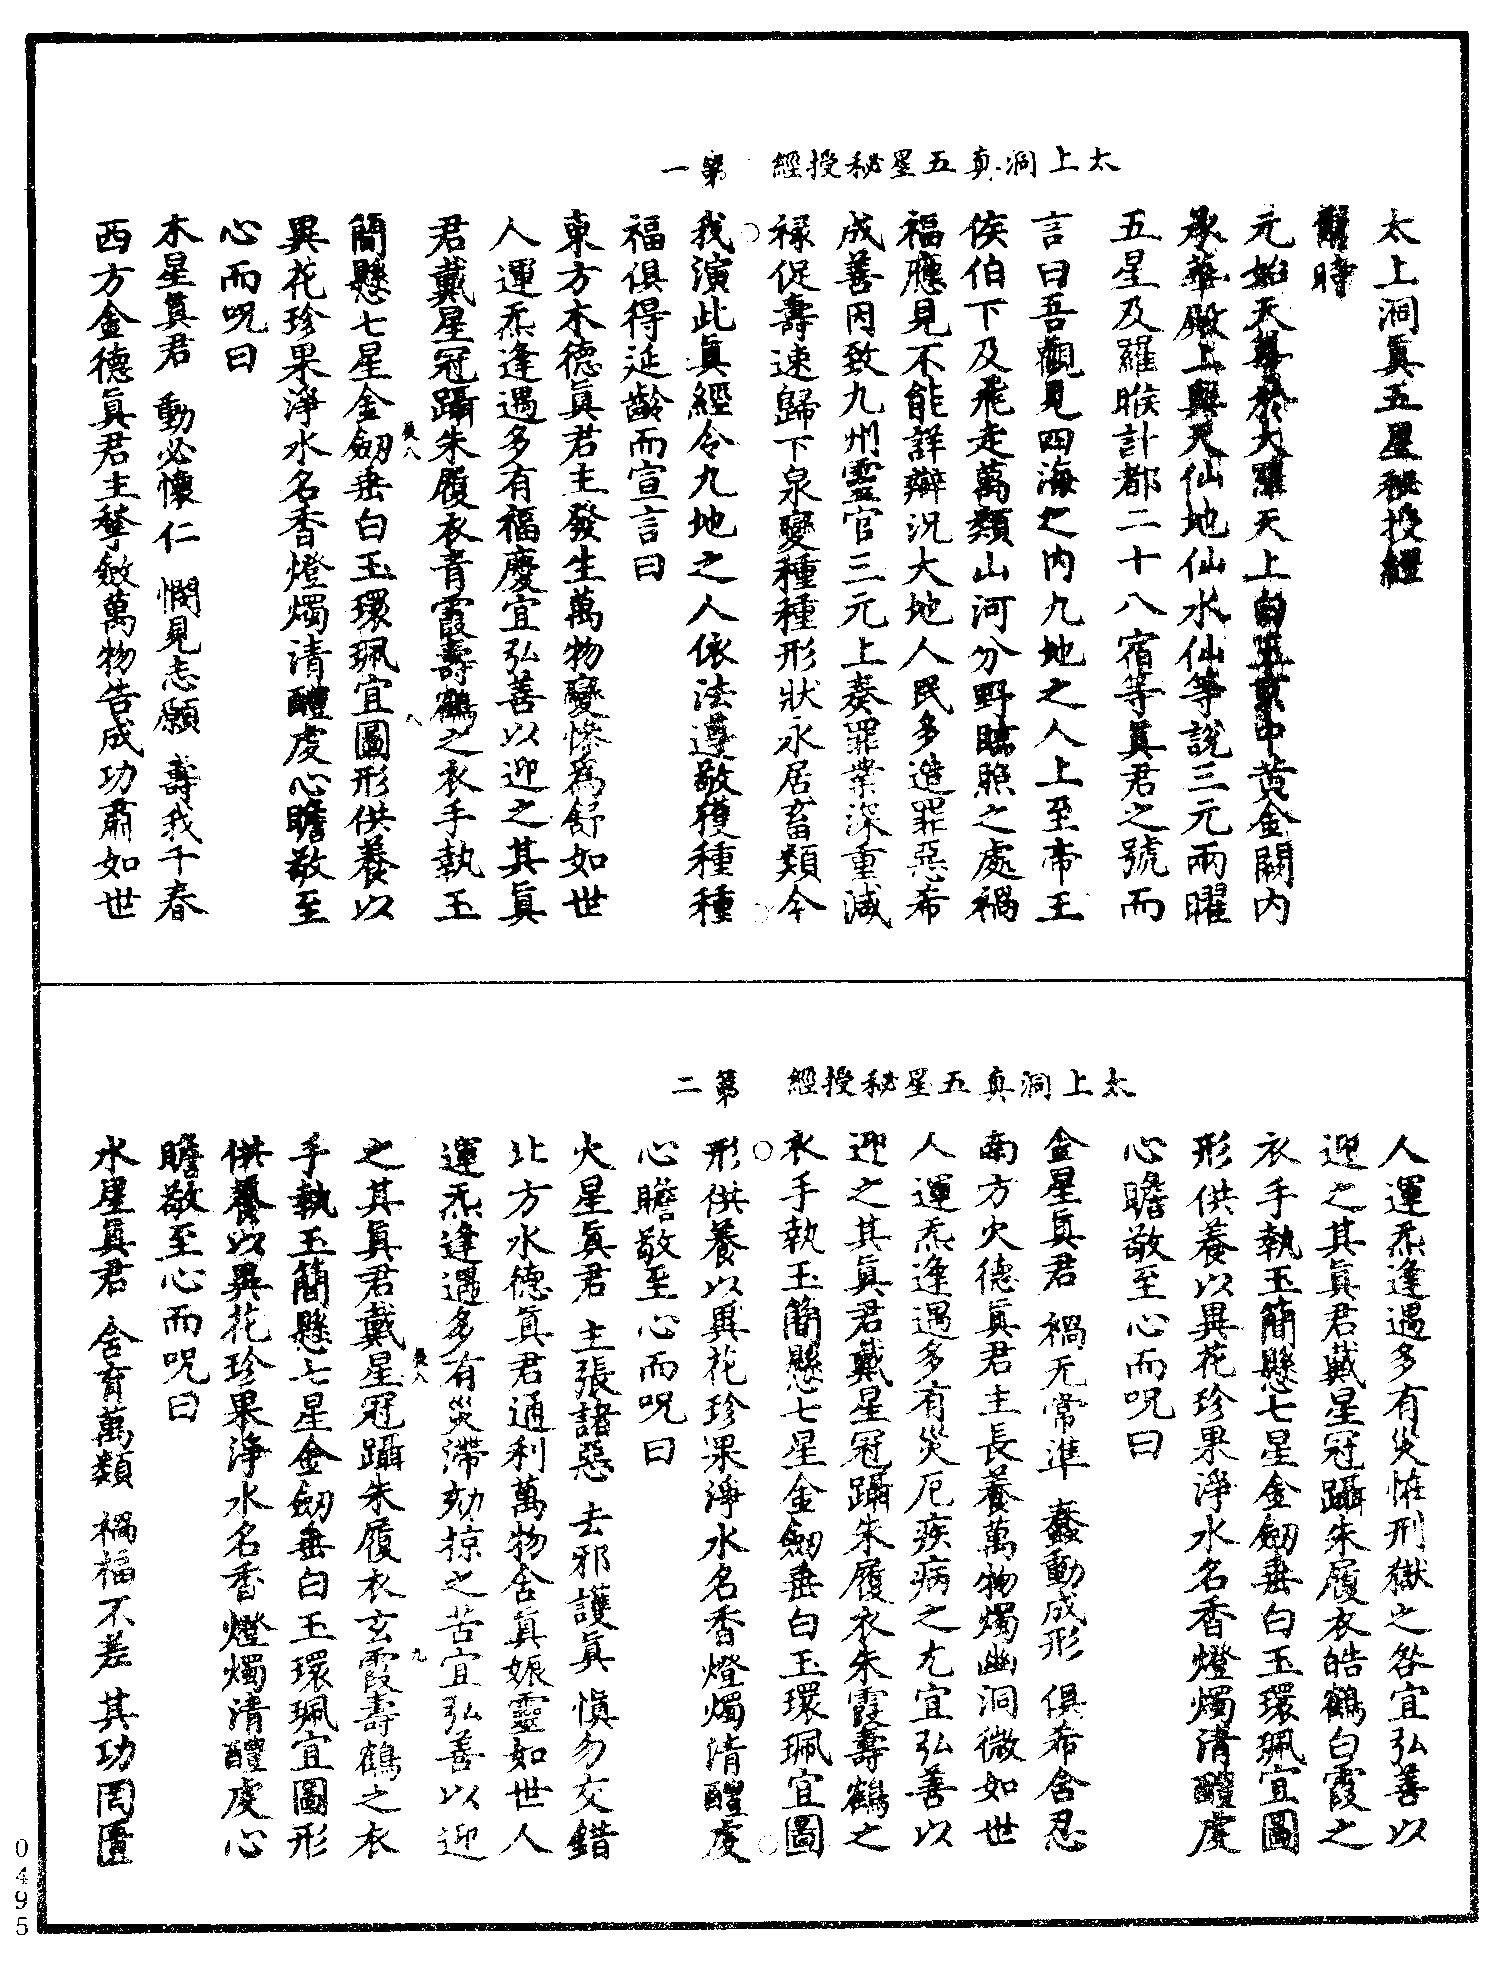 太上洞真五星秘授經　第一
太上洞眞五星秘授經
爾時
元始天尊於大羅天上白玉京中黃金闕內
承華殿上與天仙地仙水仙等說三元兩曜
五星及羅睺計都二十八宿等眞君之號而
言曰吾觀見四海之內九地之人上至帝王
侯伯下及飛走萬類山河分野臨照之處禍
福應見不能詳辯況大地人民多造罪惡希
成善因致九州靈官三元上奏罪業深重減
祿促壽速歸下泉變種種形狀永居畜類今
我演此眞經令九地之人依法遵敬獲種種
福俱得延齡而宣言曰
東方木德眞君主發生萬物變慘爲舒如世
人運炁逢遇多有福慶宜弘善以迎之其眞
君戴星冠躡朱履衣青霞壽鶴之衣手執玉
簡懸七星金劒垂白玉環珮宜圖形供養以
異花珍果淨水名香燈燭清醴虔心瞻敬至
心而呪曰
木星眞君　動必懷仁　憫見志願　壽我千春
西方金德眞君主擎斂萬物告成功肅如世
太上洞真五星秘授經　第二
人運炁逢遇多有災惟刑獄之咎宜弘善以
迎之其眞君戴星冠躡朱履衣皓鶴白霞之
衣手執玉簡懸七星金劒垂白玉環珮宜圖
形供養以異花珍果淨水名香燈燭清醴虔
心瞻敬至心而呪曰
金星眞君　禍无常準　蠢動成形　俱希含忍
南方火德眞君主長養萬物燭幽洞微如世
人運炁逢遇多有災厄疾病之尤宜弘善以
迎之其眞君戴星冠躡朱履衣朱霞壽鶴之
衣手執玉簡懸七星金劒垂白玉環珮宜圖
形供養以異花珍果淨水名香燈燭清醴虔
心瞻敬至心而呪曰
火星眞君　主張諸惡　去邪護眞　愼勿交錯
北方水德眞君通利萬物含眞娠靈如世人
運炁逢遇多有災滯劾掠之苦宜弘善以迎
之其眞君戴星冠躡朱履衣玄霞壽鶴之衣
手執玉簡懸七星金劒垂白玉環珮宜圖形
供養以異花珍果淨水名香燈燭清醴虔心
瞻敬至心而呪曰
水星眞君　含育萬類　禍福不差　其功罔匱
0495